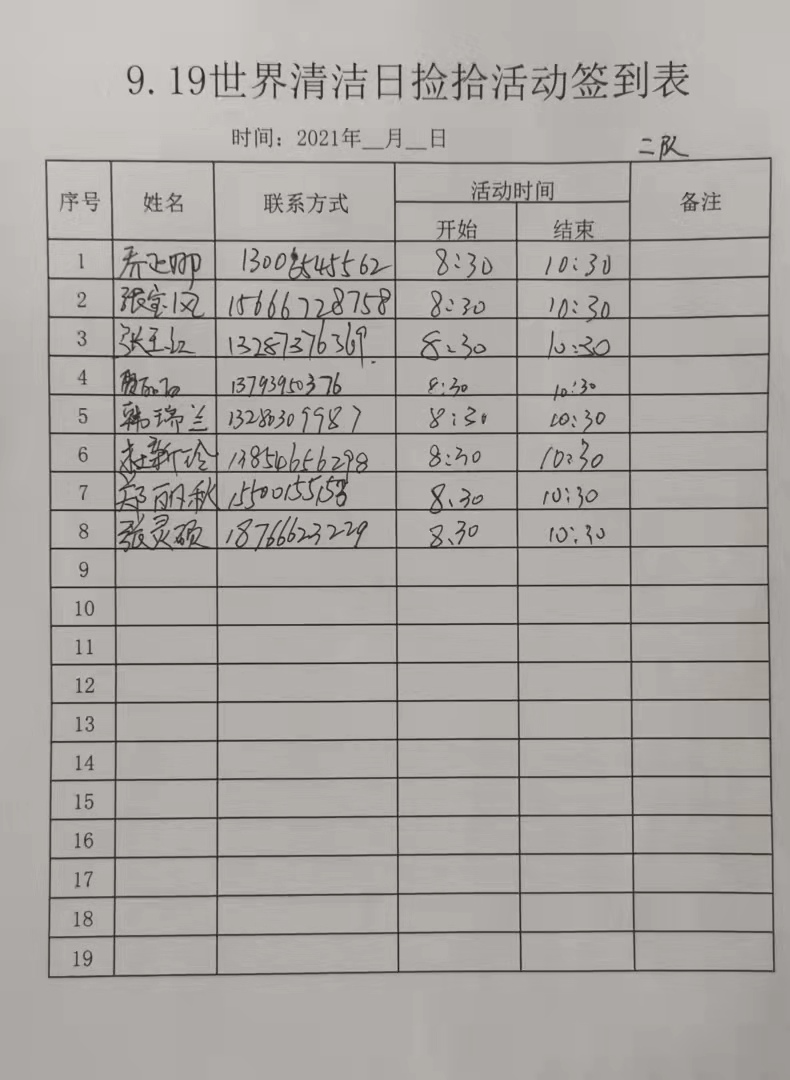 9.19世界清洁日捡拾活动签到表
时间：2021年__月__日
二队
序号 姓名 联系方式 活动时间 备注
开始 结束
1 8:30 10:30
2 张宝凤 15666728758 8:30 10:30
3 张玉红 13287376369. 8:30 10:30
4 13793950376 8:30 10:30
5 韩瑞兰 13280309987 8:30 10:30
6 杜新玲 13854656298 8:30 10:30
7 郑丽秋 8.30 10:30
8 张灵硕 18766623229 8.30 10:30
9
10
11
12
13
14
15
16
17
18
19